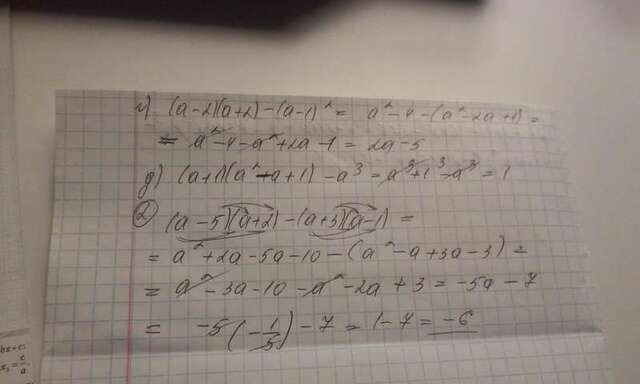 г) (a-2)(a+2)-(a-1)² = a²-4-(a²-2a+1)=
= a²-4-a²+2a-1 = 2a-5
д) (a+1)(a²-a+1)-a³ = a³+1³-a³ = 1
② (a-5)(a+2)-(a+3)(a-1) =
= a²+2a-5a-10-(a²-a+3a-3) =
= a²-3a-10-a²-2a+3 = -5a-7
= -5(-1/5)-7 = 1-7 = -6
bx+c
x₁ = c/a